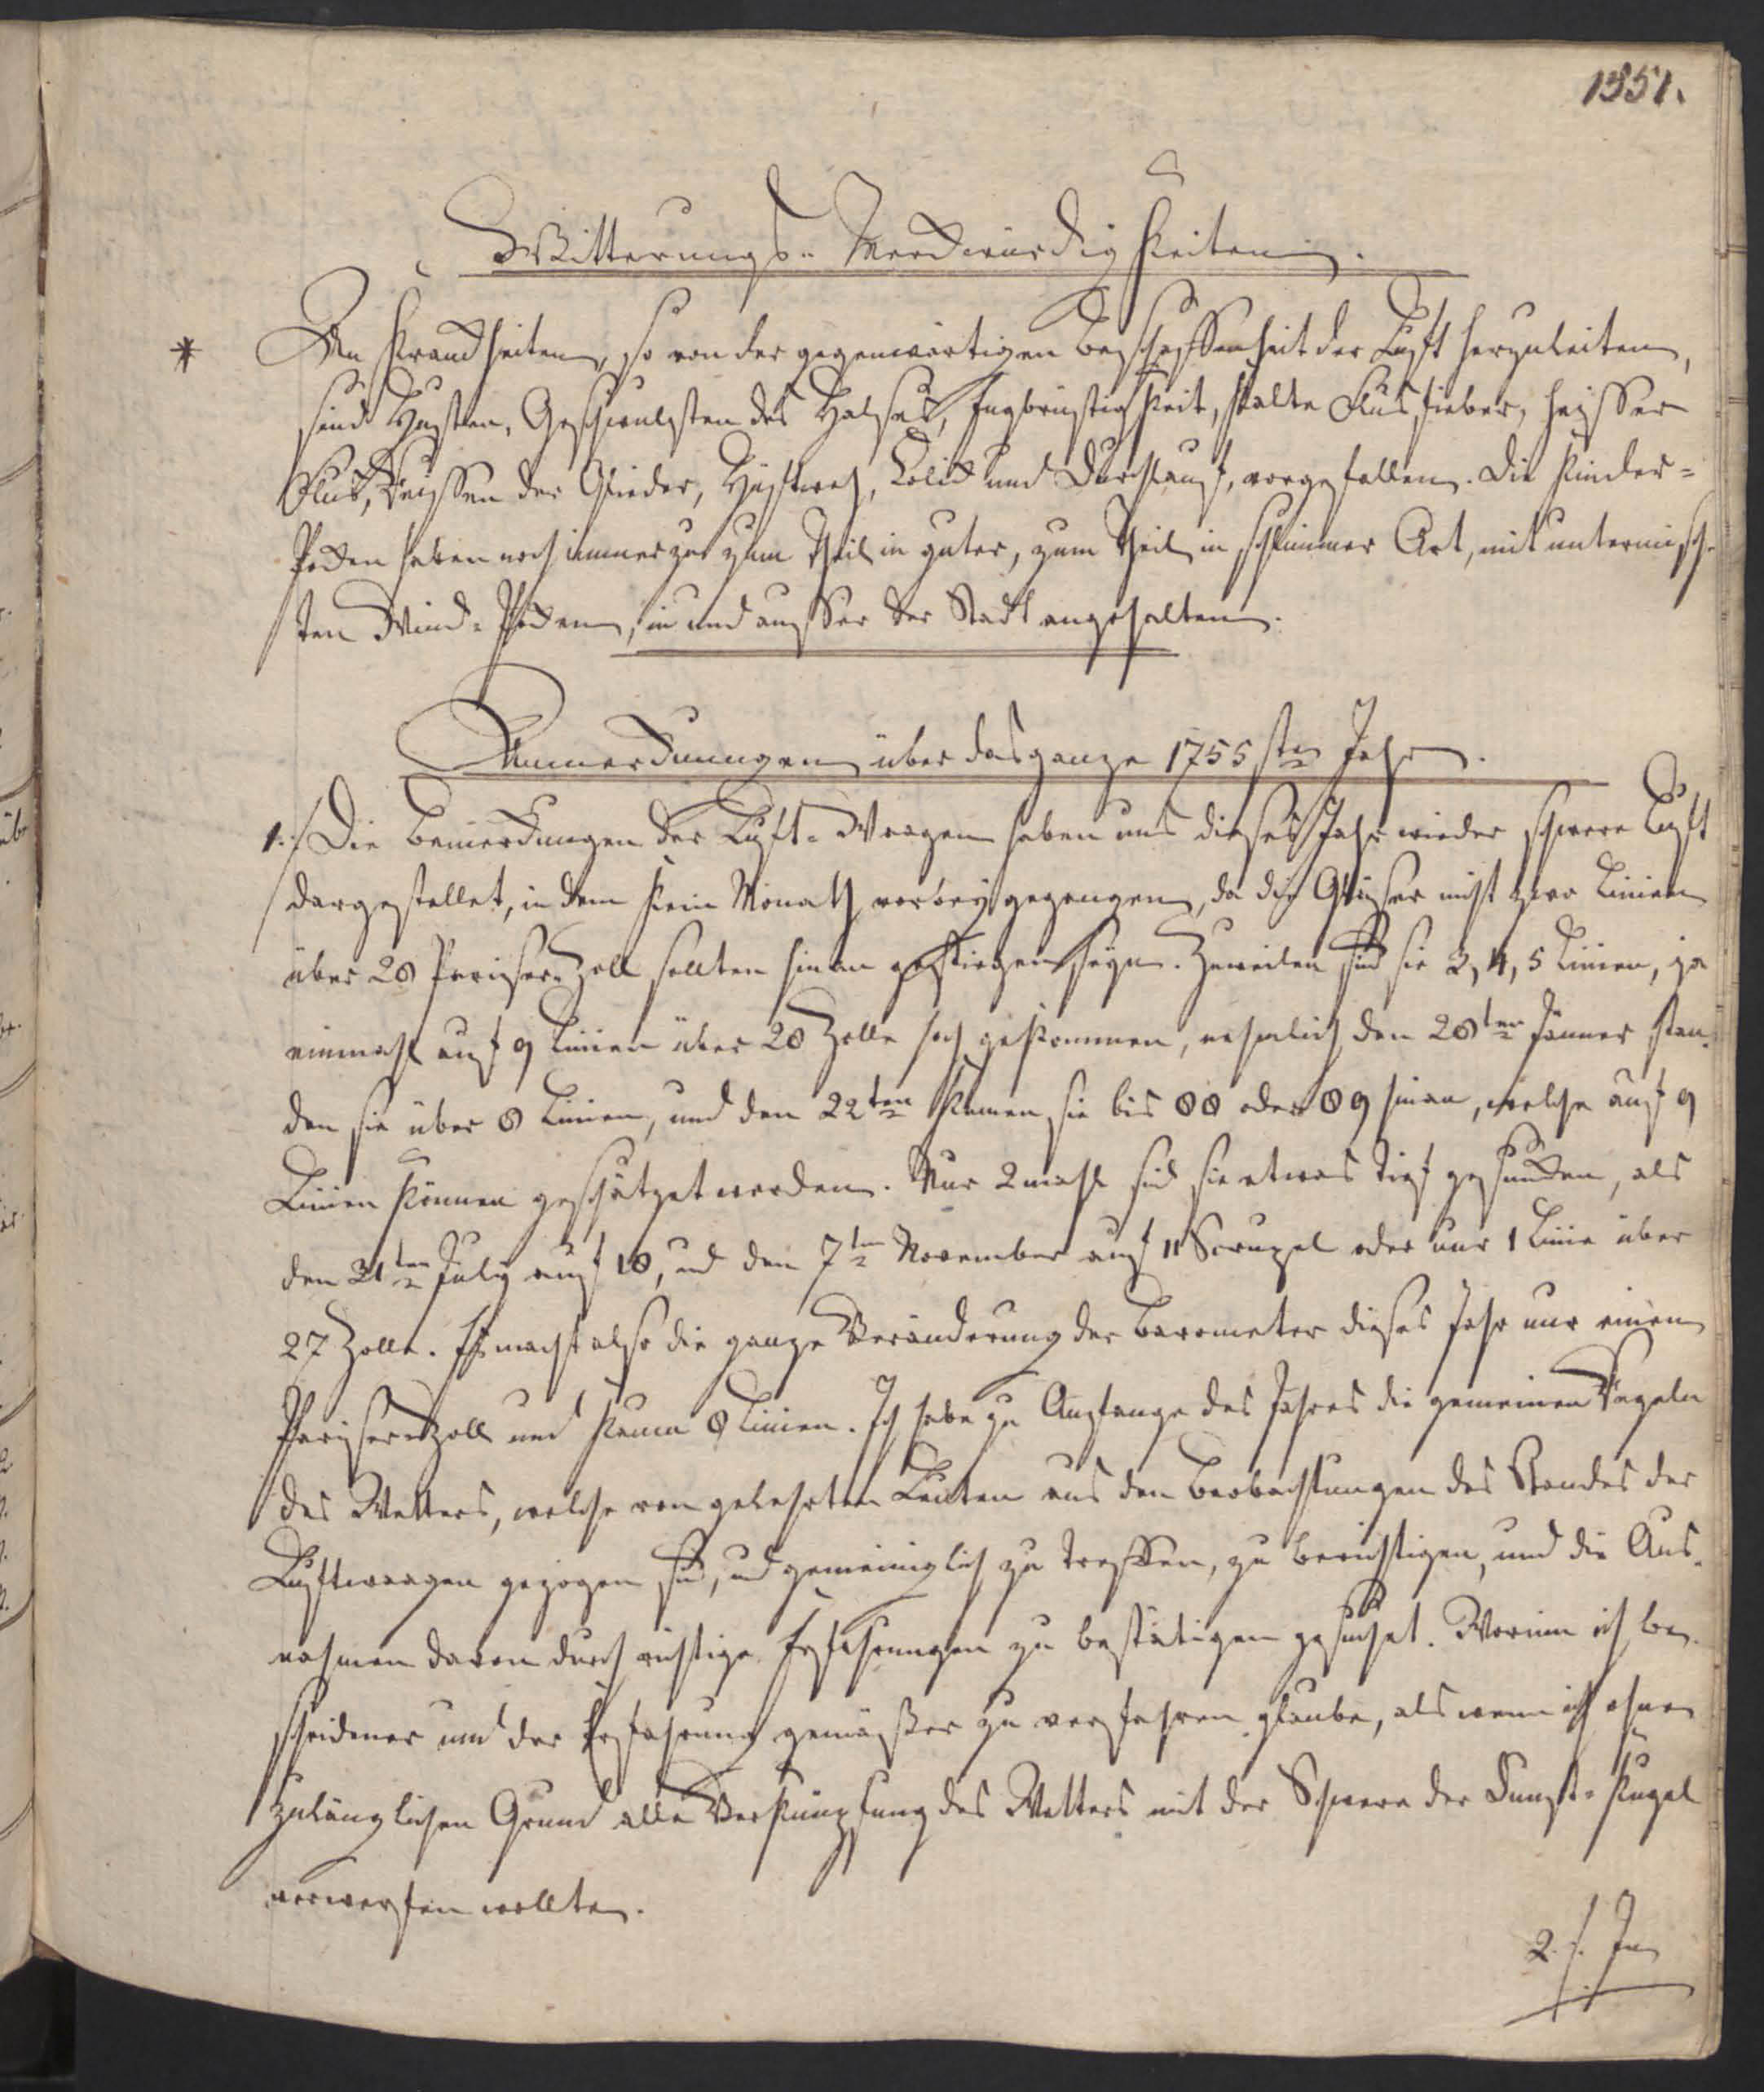 1351.
Witterungs-Merckwürdigkeiten.
* An Kranckheiten, so von der gegenwärtigen Beschaffenheit der Luft herzuleiten,
sind Husten, Geschwulsten des Halses, Engbrüstigkeit, kalte Flusfieber, heisser
Flus, Reissen der Glieder, Hüftweh, Colick und Durchlauf, vorgefallen. Die Kinder-
Pocken haben noch immerzu zum Theil in guter, zum Theil in schlimmer Art, mit untermisch-
ten Wind-Pocken, in und ausser der Stadt angehalten.
Anmerckungen über das ganze 1755ste Jahr.
1./ Die Bemerckungen der Luft-Waagen haben uns dieses Jahr wieder schwere Luft
dargestellet, in dem kein Monath vorbey gegangen, da die Gläser nicht zwo Linien
über 28 Pariser-Zoll sollten hinan gestiegen seyn. Zuweilen sind sie 3, 4, 5 Linien, ja
einmahl auf 9 Linien über 28 Zolle hoch gekommen, nehmlich den 28ten Jänner stan-
den sie über 8 Linien, und den 22ten kamen sie bis 88 oder 89 hinan, welche auf 9
Linien können geschätzet werden. Nur 2mahl sind sie etwas tief gesuncken, als
den 31ten July auf 18, und den 7ten November auf 11 Scrupel oder nur 1 Linie über
27 Zolle. Es macht also die ganze Veränderung der Barometer dieses Jahr nur einen
Pariser-Zoll und kaum 8 Linien. Ich habe zu Anfange des Jahres die gemeinen Regeln
des Wetters, welche von gelehrten Leuten aus den Beobachtungen des Standes der
Luftwaagen gezogen sind, und gemeiniglich zu treffen, zu berichtigen, und die Aus-
nahmen davon durch richtige Erfahrungen zu bestätigen gesucht. Worinn ich be-
scheidener und der Erfahrung gemäßer zu verfahren glaube, als wenn ich ohne
zulänglichen Grund alle Verknüpfung des Wetters mit der Schwere der Dunst-Kugel
verwerfen wollte.
2./. In